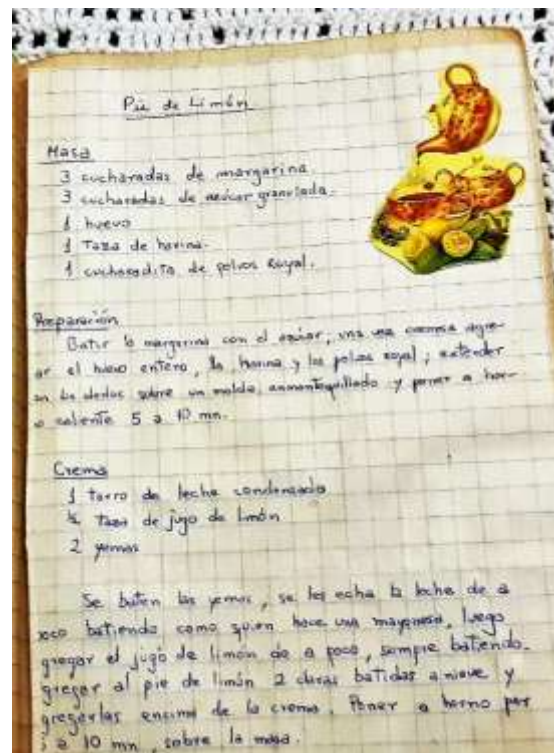 Pie de Limón
Masa
3 cucharadas de margarina.
3 cucharadas de azúcar granulada.
1 huevo
1 Taza de harina.
1 cucharadita de polvos Royal.
Preparación
Batir la margarina con el azúcar, una vez cremosa agre-
ar el huevo entero, la harina y los polvos royal; extender
on los dedos sobre un molde enmantequillado y poner a hor-
o caliente 5 a 10 mn.
Crema
1 tarro de leche condensada
taza de jugo de limón
2 yemas
Se baten las yemas, se les echa la leche de a
oco batiendo como quien hace una mayonesa, luego
gregar el jugo de limón de a poco, siempre batiendo.
gregar al pie de limón 2 claras batidas a nieve y
gregarlas encima de la crema. Poner a horno por
a 10 mn, sobre la masa.